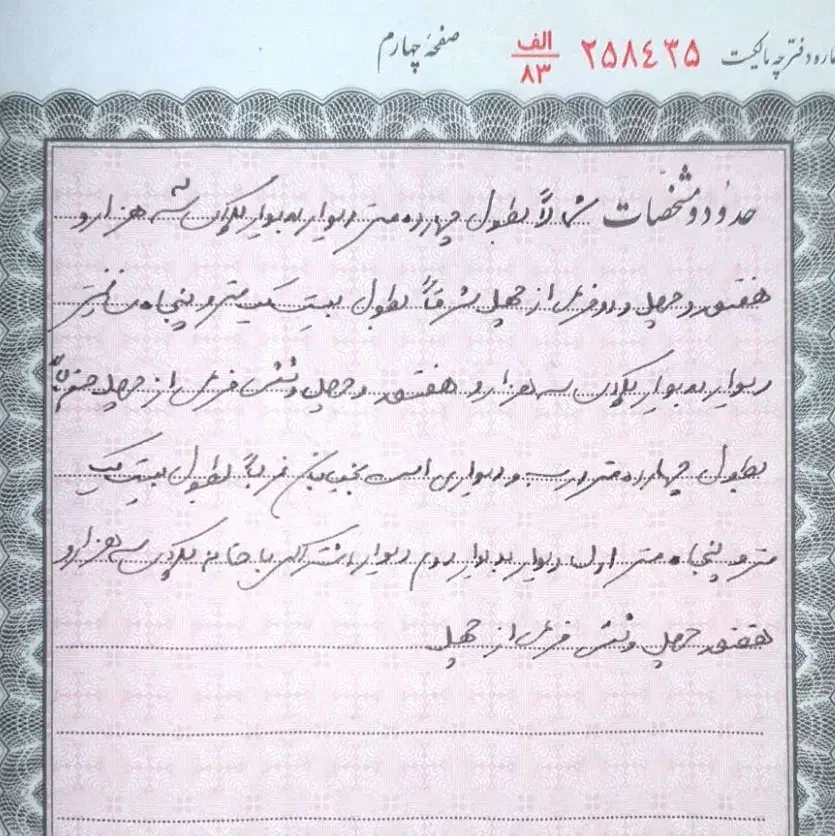 شماره دفترچه مالکیت ۲۵۸۴۳۵ الف/۸۳ صفحهٔ چهارم
حدود و مشخصات شمالاً بطول چهارده متر دیوار به دیوار پلاک سه هزار و
هفتصد و چهل و دو فرعی از چهل شرقاً بطول بیست یک متر و پنجاه سانتیمتر
دیوار به دیوار پلاک سه هزار و هفتصد و چهل و شش فرعی از چهل جنوباً
بطول چهارده متر درب و دیواری است بخیابان غرباً بطول بیست یک
متر و پنجاه متر اول دیوار به دیوار دوم دیوار اشتراکی با خانه پلاک سه هزار و
هفتصد چهل و شش فرعی از چهل